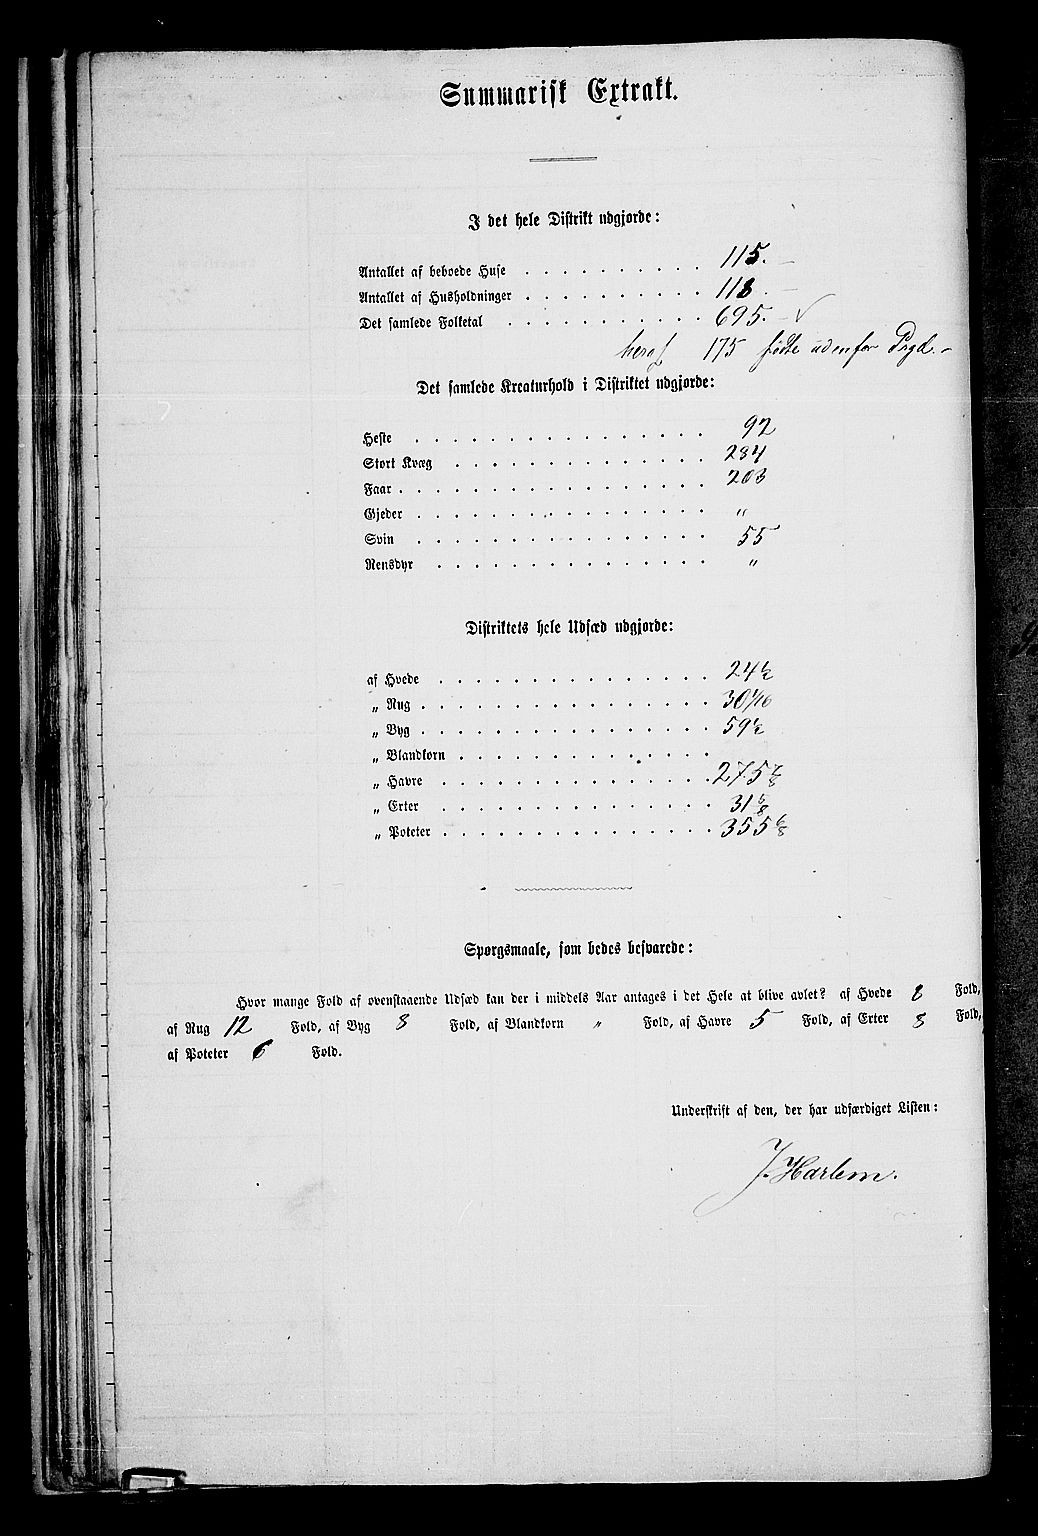 Summarisk Extrakt.
I det hele Distrikt udgjorde:
Antallet af beboede Huse . . . . . . . . . . 115. —
Antallet af Husholdninger . . . . . . . . . . 118. —
Det samlede Folketal . . . . . . . . . . . 695. — ✓
heraf 175 fødte udenfor Prgd. -
Det samlede Kreaturhold i Distriktet udgjorde:
Heste . . . . . . . . . . . . . . . . 92
Stort Kvæg . . . . . . . . . . . . . . 234
Faar . . . . . . . . . . . . . . . . . 203
Gjeder . . . . . . . . . . . . . . . . "
Svin . . . . . . . . . . . . . . . . 55
Rensdyr . . . . . . . . . . . . . . . "
Distriktets hele Udsæd udgjorde:
af Hvede . . . . . . . . . . . . . . . 24 1/2
„ Rug . . . . . . . . . . . . . . . . 30 1/16
„ Byg . . . . . . . . . . . . . . . . 59 1/2
„ Blandkorn . . . . . . . . . . . . . .
„ Havre . . . . . . . . . . . . . . . 275 7/8
„ Erter . . . . . . . . . . . . . . . 31 6/8
„ Poteter . . . . . . . . . . . . . . . 355 6/8
Spørgsmaale, som bedes besvarede:
Hvor mange Fold af ovenstaaende Udsæd kan der i middels Aar antages i det Hele at blive avlet? af Hvede 8 Fold,
af Rug 12 Fold, af Byg 8 Fold, af Blandkorn " Fold, af Havre 5 Fold, af Erter 8 Fold,
af Poteter 6 Fold.
Underskrift af den, der har udfærdiget Listen:
J. Harlem.